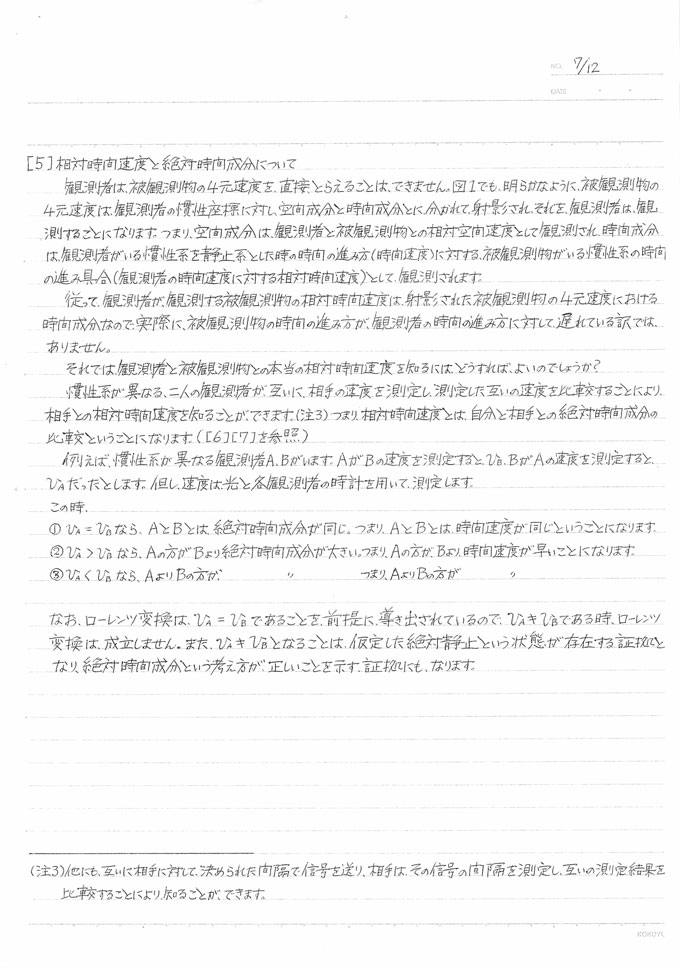 NO. 7/12
DATE
[5]相対時間速度と絶対時間成分について
観測者は、被観測物の4元速度を、直接とらえることは、できません。図1でも、明らかなように、被観測物の
4元速度は、観測者の慣性座標に対し、空間成分と時間成分とに、分かれて、射影され、それを、観測者は、観
測することになります。つまり、空間成分は、観測者と被観測物との相対空間速度として観測され、時間成分
は、観測者がいる慣性系を静止系とした時の時間の進み方(時間速度)に対する、被観測物がいる慣性系の時間
の進み具合(観測者の時間速度に対する相対時間速度)として、観測されます。
従って、観測者が、観測する被観測物の相対時間速度は、射影された被観測物の4元速度における
時間成分なので、実際に、被観測物の時間の進み方が、観測者の時間の進み方に対して、遅れている訳では、
ありません。
それでは、観測者と被観測物との本当の相対時間速度を知るには、どうすれば、よいのでしょうか?
慣性系が異なる、二人の観測者が、互いに、相手の速度を測定し、測定した互いの速度を比較することにより、
相手との相対時間速度を知ることが、できます。(注3)つまり、相対時間速度とは、自分と相手との絶対時間成分の
比較ということになります。([6][7]を参照)
例えば、慣性系が異なる観測者A、Bがいます。AがBの速度を測定すると、υB、BがAの速度を測定すると、
υAだったとします。但し、速度は、光と各観測者の時計を用いて、測定します。
この時、
① υA = υB なら、AとBとは、絶対時間成分が同じ。つまり、AとBとは、時間速度が同じということになります。
② υA > υB なら、Aの方がBより絶対時間成分が大きい。つまり、Aの方が、Bより、時間速度が早いことになります。
③ υA < υB なら、AよりBの方が、 〃 つまり、AよりBの方が 〃
なお、ローレンツ変換は、υA = υBであることを、前提に、導き出されているので、υA ≠ υBである時、ローレンツ
変換は、成立しません。また、υA ≠ υBとなることは、仮定した絶対静止という状態が存在する証拠と
なり、絶対時間成分という考え方が、正しいことを示す、証拠にも、なります。
(注3)他にも、互いに相手に対して、決められた間隔で信号を送り、相手は、その信号の間隔を測定し、互いの測定結果を
比較することにより、知ることが、できます。
KOKUYO